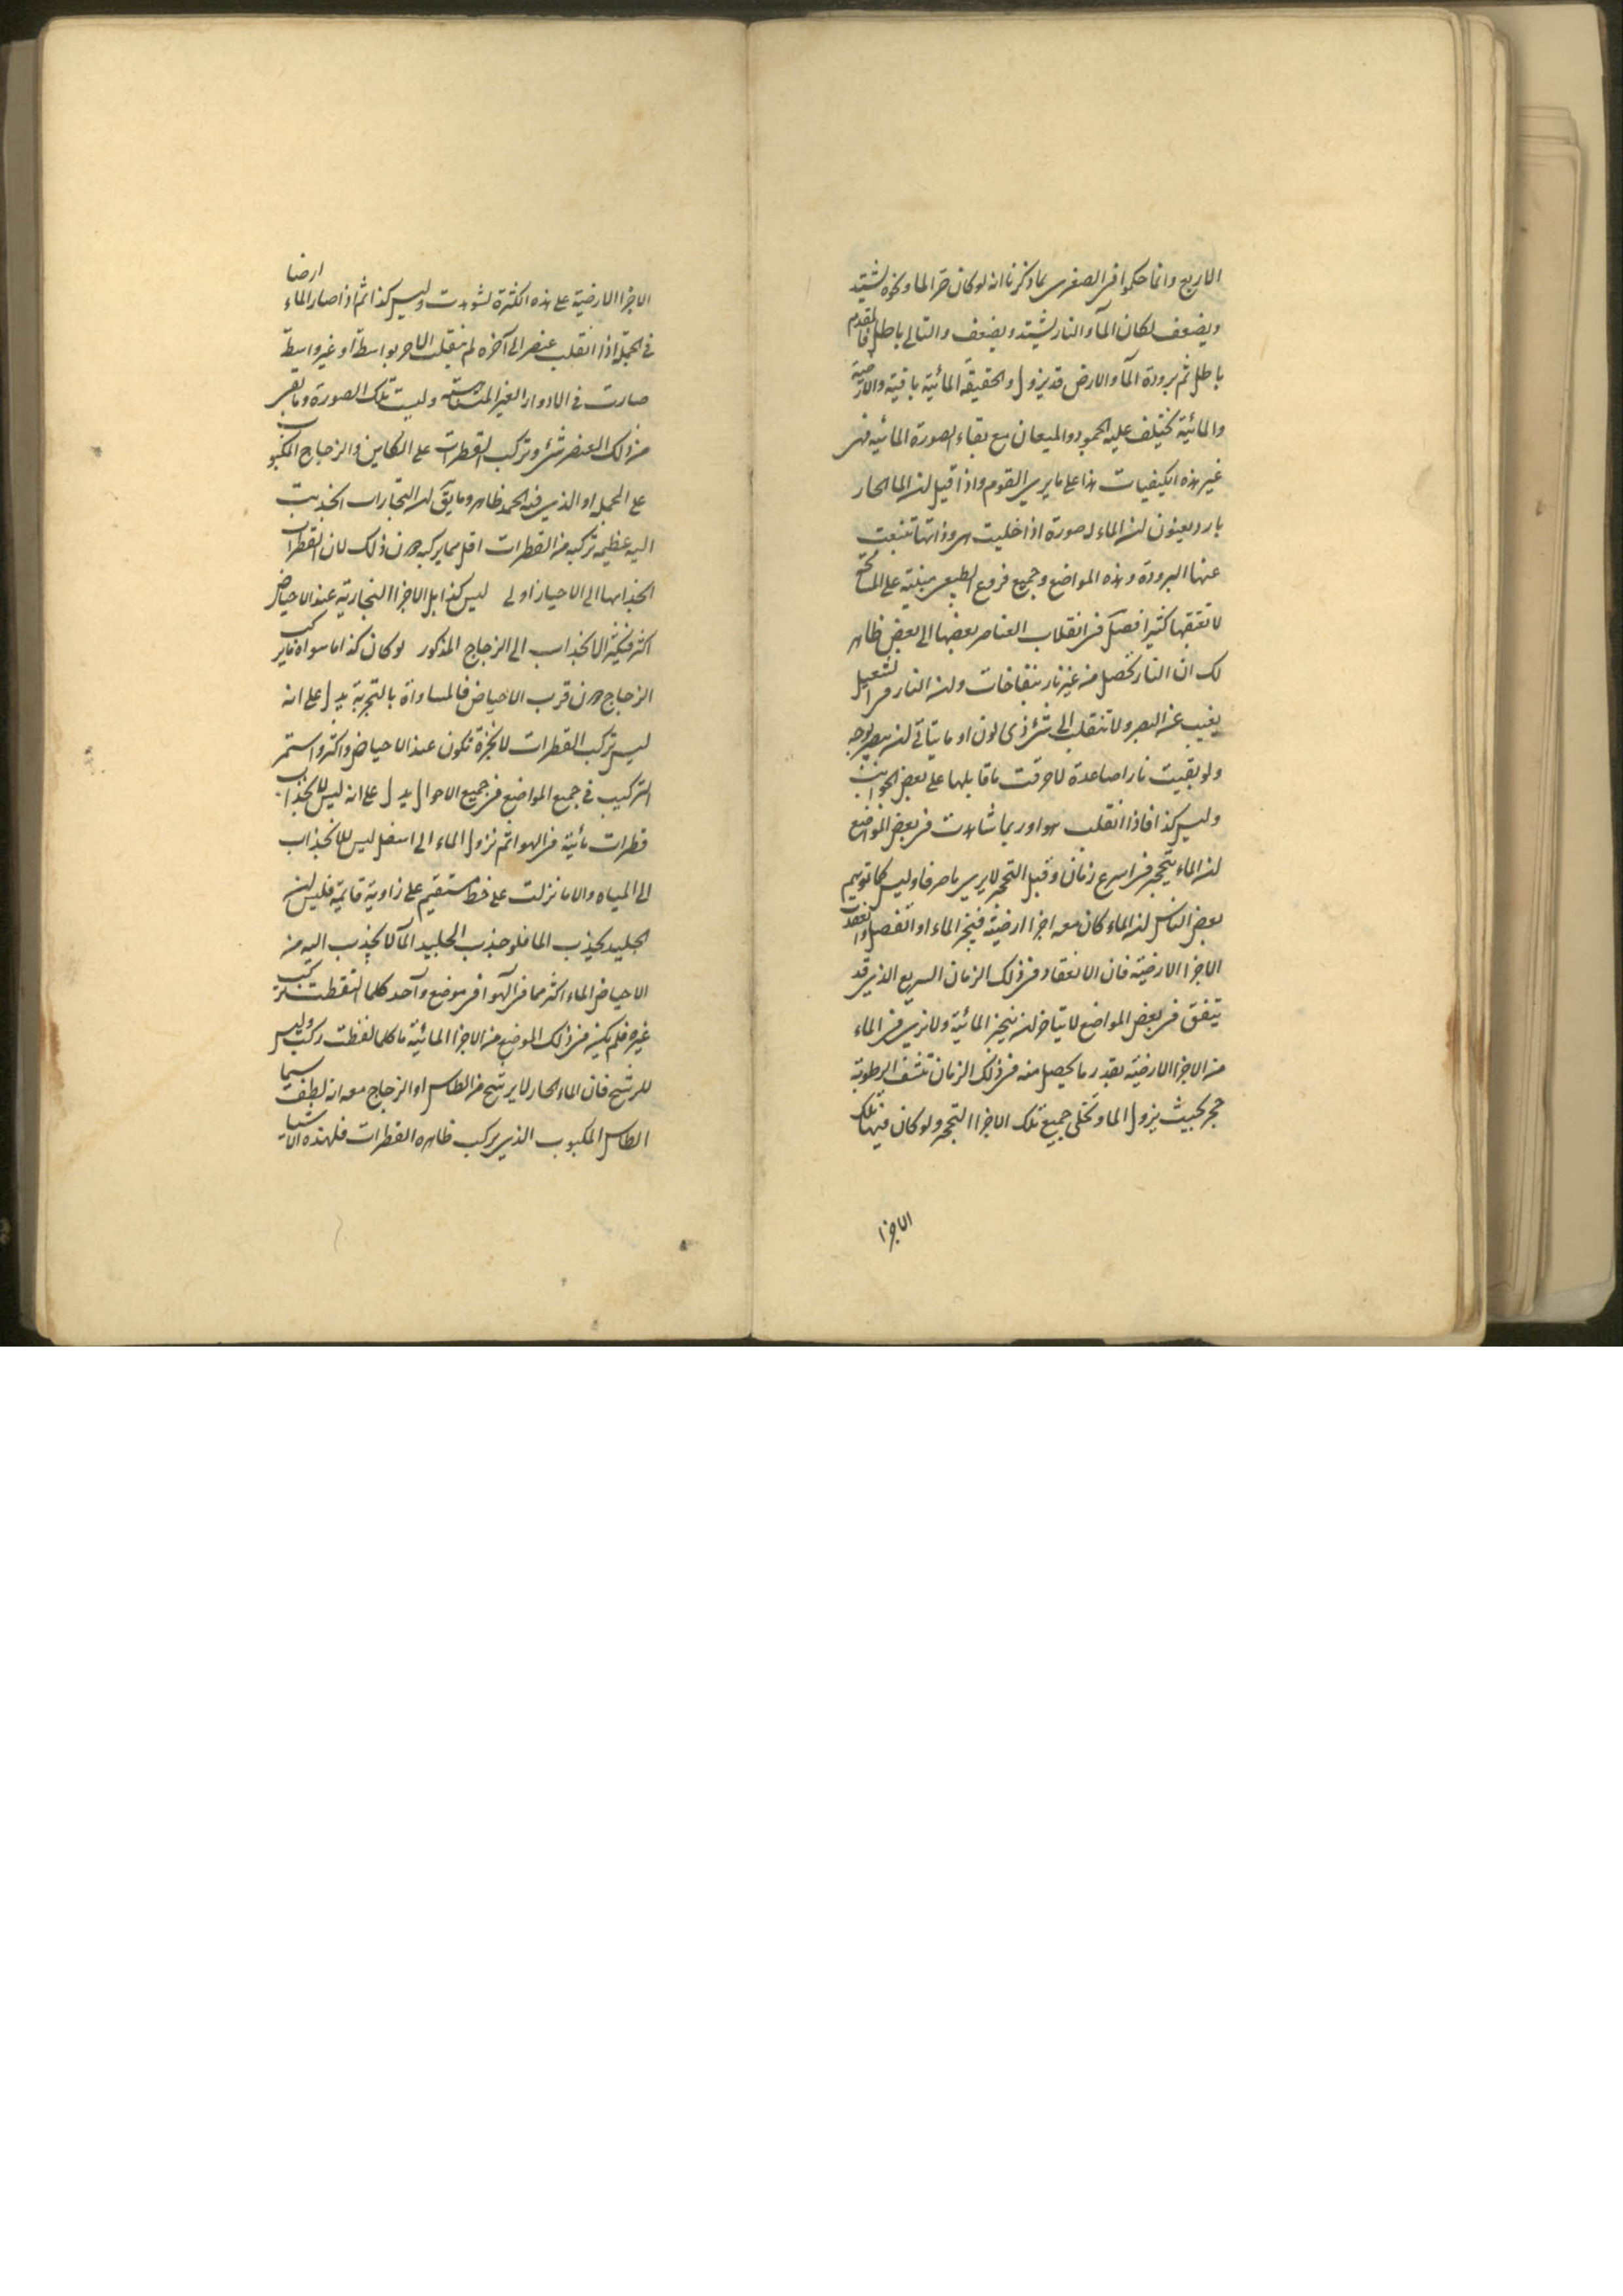 الاربع وانما حكموا فى الصغرى بما ذكرنا انه لو كان حر الما ونحوه يشتد
ويضعف لكان المآ والنار يشتد ويضعف والتالى باطل فالمقدم
باطل ثم برودة المآ والارض قد يزول والحقيقة المائية باقية والارضية
والمائية تختلف عليه الجمود والميعان مع بقاء الصورة المائية فهى
غير هذه الكيفيات هذا على ما يرى القوم واذا قيل ان الما الحار
بارد يعنون ان الماء له صورة اذا خليت هى وذاتها تنبعث
عنها البرودة وهذه المواضع وجميع فروع الطبيعى مبنية على
لا نفقهها كثيرا فصل فى انقلاب العناصر بعضها الى بعض ظاهر
لك ان النار تحصل من غير نار بنفاخات وان النار فى الشعيل
يغيب عن البصر ولا تنقلب الى شئ ذى لون او ما يتأتى ان يبصر بوجه
ولو بقيت نارا صاعدة لاحرقت ما قابلها على بعض الجوانب
وليس كذا فاذا انقلب هواء وربما شاهدت فى بعض المواضع
ان الماء يتحجر فى اسرع زمان وقبل التحجر لا يرى ما صرفا وليس كما توهم
بعض الناس ان الماء كان معه اجزا ارضية فيتبخر الماء او انفصل وانعقدت
الاجزا الارضية فان الانعقاد فى ذلك الزمان السريع الذى قد
يتفق فى بعض المواضع لا يتاخر ان يتبخر المائية ولا نرى فى الماء
من الاجزا الارضية بقدر ما يحصل منه فى ذلك الزمان تنشف الرطوبة
حجر بحيث يزول الما وتخلى جميع تلك الاجزا التحجر ولو كان فيها تلك
الاجزا
الاجزا الارضية على هذه الكثرة لشوهدت وليس كذا ثم اذا صار الماء ارضا
فى الجملة اذا انقلب عنصر الى آخر ولم ينقلب الآخر بواسطة او غير واسطة
صارت فى الادوار الغير المتناهية وليست تلك الصورة وما بقى
من ذلك العنصر شئ وتركب القطرات على الطاس والزجاج المكبوب
على الجمد او الذى فيه الجمد ظاهر وما يق ان البخارات انجذبت
اليه عظيمة تركبه من القطرات اقل مما يركبه دون ذلك لان القطرات
انجذابها الى الاحياز اولى ليس كذا بل الاجزا البخارية عند الاحياض
اكثر فيكون الانجذاب الى الزجاج المذكور لو كان كذا ما سواه ما يركب
الزجاج دون قرب الاحياض فالمساواة بالتجربة يدل على انه
ليس تركب القطرات لابخرة تكون عند الاحياض واكثر واستمر
التركيب فى جميع المواضع فى جميع الاحوال يدل على انه ليس للانجذاب
قطرات مائية فى الهوا ثم نزول الماء الى اسفل ليس للانجذاب
الى المياه والا ما نزلت على خط مستقيم على زاوية قايمة فليس ان
الجليد يجذب الما فلو جذب الجليد المآ لانجذب اليه من
الاحياض الماء اكثر مما فى الهوآ فى موضع واحد كلما التقطت تركب
غيره فلم يكن فى ذلك الموضع من الاجزا المائية ما كلما لفظت ركب وليس
للرشح فان الماء الحار لا يرشح من الطاس او الزجاج مع انه لطف سيما
الطاس المكبوب الذى يركب ظاهره القطرات فلهذه الاشيا